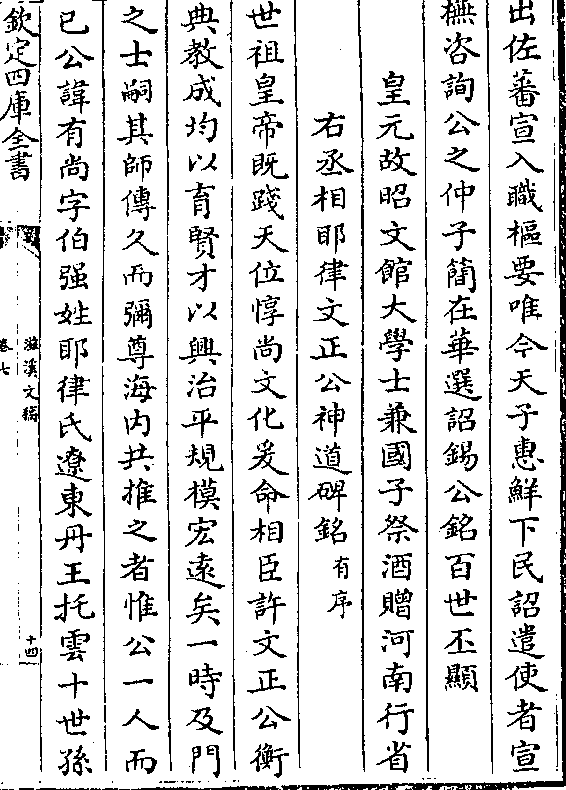 出佐蕃宣入職樞要唯今天子惠鮮下民詔遣使者宣
橅咨詢公之仲子簡在華選詔錫公銘百世丕顯
皇元故昭文館大學士兼國子祭酒贈河南行省
右丞相耶律文正公神道碑銘有序
世祖皇帝既踐天位惇尚文化爰命相臣許文正公衡
典教成均以育賢才以興治平規模宏遠矣一時及門
之士嗣其師傳久而彌尊海内共推之者惟公一人而
已公諱有尚字伯强姓耶律氏遼東丹王托雲十世孫
欽定四庫全書
滋溪文稿
卷七
十四